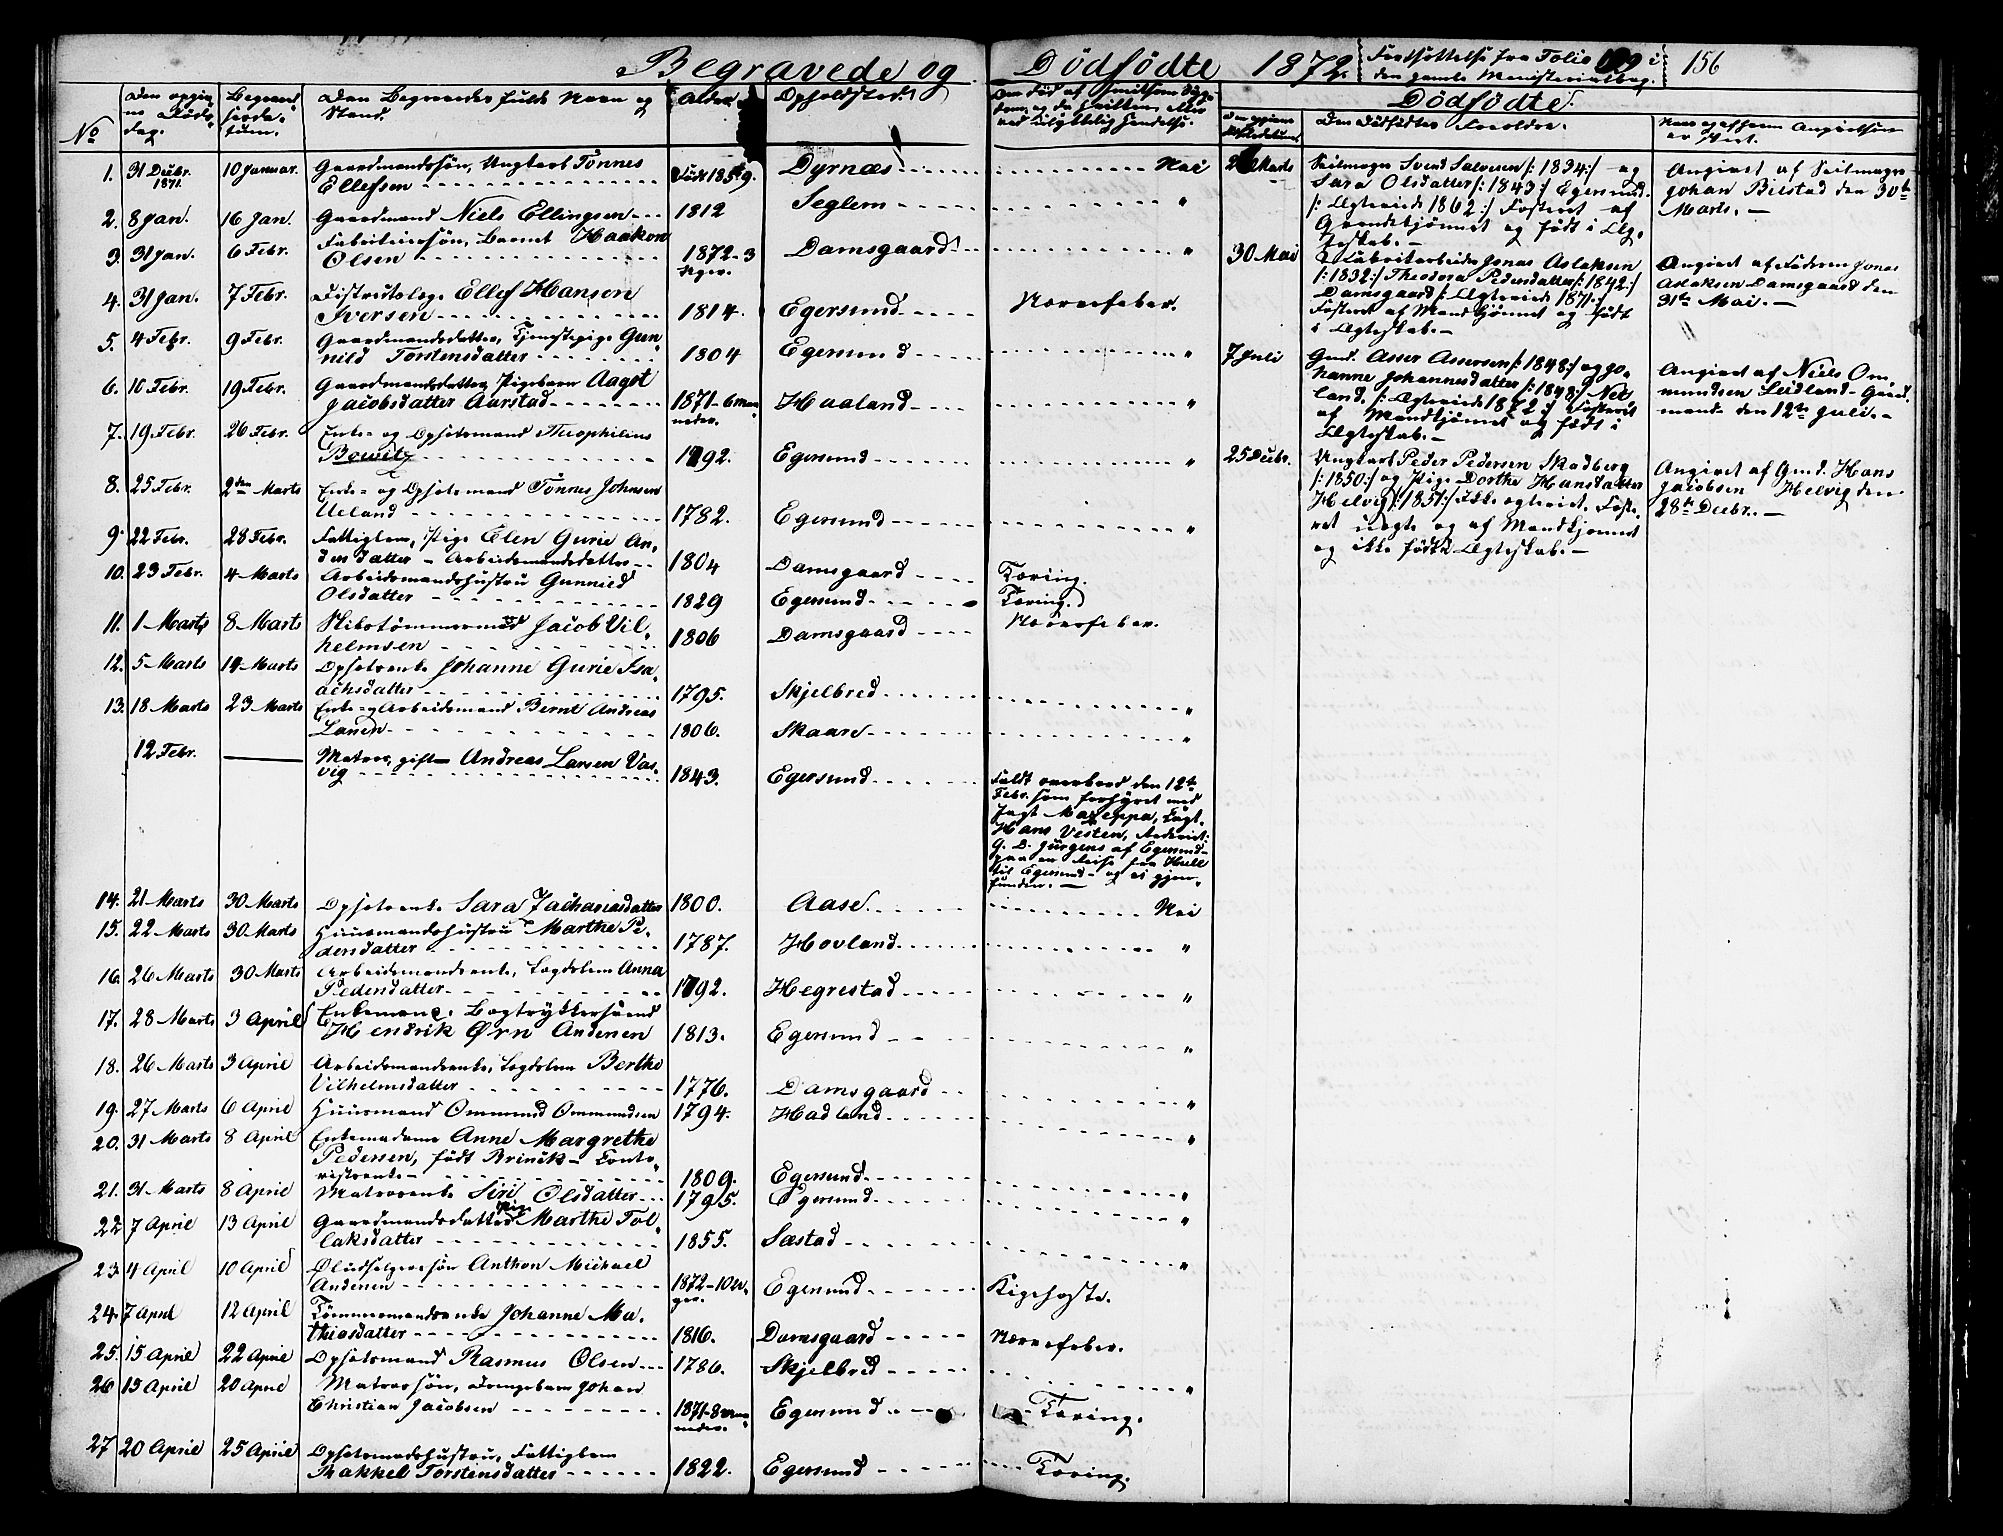 Begravede og Dödfödte 1872. Fortsættelse fra Folio i 156
den gamle Ministerialbog.
No Den opgivne Döds- dag. Begravelsesdatum. Den Begravedes fulde Navn og Stand. Alder Opholdsted.
Dödfödte.
Den Dödfödtes Forældre.
1. 31 Decbr. 1871. 10 Januar. Gaardmandssön, Ungkarl Tönnes
Ellefsen Födt 1859. Dyrnæs Nei
2. 8 Jan. 16 Jan. Gaardmand Niels Ellingsen 1812 Seglem "
3. 31 Jan. 6 Febr. Fabrikeiersön, Barnet Haakon
Olsen 1872-3 Uger. Damsgaard "
4. 31 Jan. 7 Febr. Districtslæge Ellef Hansen
Iversen 1814. Egersund Nervefeber.
5. 4 Febr. 9 Febr. Gaardmandsdatter, Tjenestepige Gun-
nild Torstensdatter 1804 Egersund "
6. 10 Febr. 19 Febr. Gaardmandsdatter, Pigebarn Aagot
Jacobsdatter Aarstad 1871-6 Maaneder. Haaland "
7. 19 Febr. 26 Febr. Enke- og Opsidsmand Theophilius
Bowitz 1792. Egersund "
8. 25 Febr. 2den Marts Enke- og Opsidsmand Tönnes Johnsen
Ueland 1782. Egersund "
9. 22 Febr. 28 Febr. Fattiglem, Pige Elen Gurie An-
dersdatter - Arbeidsmandsdatter 1804 Damsgaard Tæring.
10. 23 Febr. 4 Marts Arbeidsmandshustru Gunnild
Olsdatter 1829 Egersund Tæring.
11. 1 Marts 8 Marts Skibstömmermand Jacob Vil-
helmsen 1806 Damsgaard Nervefeber.
12. 5 Marts 14 Marts Opsidsenke Johanne Gurie Isa-
achsdatter 1795. Skjelbred "
13. 18 Marts 23 Marts Enke- og Arbeidsmand Bernt Andreas
Larsen 1806. Skaare "
12 Febr. Matros, gift Andreas Larsen Vas-
vig 1843. Egersund Faldt overbord den 12te
Febr. som forhyret med
Jagt Mazeppa, Capt.
Hans Vesten, Rederiet:
G. D. Jürgens af Egersund
paa en Reise fra Hull
til Egersund - og ei gjen-
funden.
14. 21 Marts 30 Marts Opsidsenke Sara Zachariasdatter 1800. Aase Nei
15. 22 Marts 30 Marts Huusmandshustru Marthe Pe-
dersdatter 1787. Hovland "
16. 26 Marts 30 Marts Arbeidsmandsenke, Lægdslem Anna
Pedersdatter 1792. Hegrestad "
17. 28 Marts 3 April Enkemand, Bogtrykkersvend
Hendrik Örn Andersen 1813. Egersund "
18. 26 Marts 3 April Arbeidsmandsenke, Lægdslem Berthe
Vilhelmsdatter 1776. Damsgaard "
19. 27 Marts 6 April Huusmand Ommund Ommundsen 1794. Hadland "
20. 31 Marts 8 April Enkemadame Anne Margrethe
Pedersen, födt Brinck - Conto-
ristenke 1809. Egersund "
21. 31 Marts 8 April Matrosenke Siri Olsdatter 1795. Egersund "
22. 7 April 13 April Gaardmandsdatter Pige Marthe Tol-
laksdatter 1855. Sæstad "
23. 4 April 10 April Öludsælgersön Anthon Michael
Andersen 1872-10 Uger. Egersund Kighoste.
24. 7 April 12 April Tömmermandsenke Johanne Ma-
thiasdatter 1816. Damsgaard Nervefeber.
25. 15 April 22 April Opsidsmand Rasmus Olsen 1786. Skjelbred "
26 15 April 20 April Matrossön, Drengebarn Johan
Christian Jacobsen 1871-8 Maaneder. Egersund Tæring.
27 20 April 25 April Opsidsmandshustru, Fattiglem
Rakkel Torstensdatter 1822. Egersund Tæring.
Marts Seilmager Svend Salvesen /: 1834:/ og
Sara Olsdatter /: 1843:/ Egersund.
/: Ægteviede 1862:/ Fosteret af
Qvindekjönnet og födt i Æg-
teskab.
Angivet af Seilmager
Johan Bilstad den 30te
Marts.
30 Mai Fabrikarbeider Jonas Aslaksen
/: 1832:/ Theodora Pedersdatter /: 1842:/
Damsgaard /: Ægteviede 1871:/
Fosteret af Mandkjönnet og födt
i Ægteskab.
Angivet af Faderen Jonas
Aslaksen Damsgaard den
31te Mai.
7 Juli Gmd. Asser Assersen /: 1848:/ og Jo-
hanne Johannesdatter /: 1848:/ Net-
land, /: Ægteviede 1872:/ Fosteret
af Mandkjönnet og födt i
Ægteskab.
Angivet af Niels Om-
mundsen Leidland - Gaard-
mand - den 12te Juli.
25 Decbr. Ungkarl Peder Pedersen Skadberg
/: 1850:/ og Pige Dorthe Hansdatter
Helvig /: 1851:/ Ikke ægteviet. Foste-
ret uægte og af Mandkjönnet
og ikke födt i Ægteskab.
Angivet af Gmd. Hans
Jacobsen Helvig den
28de Decbr.